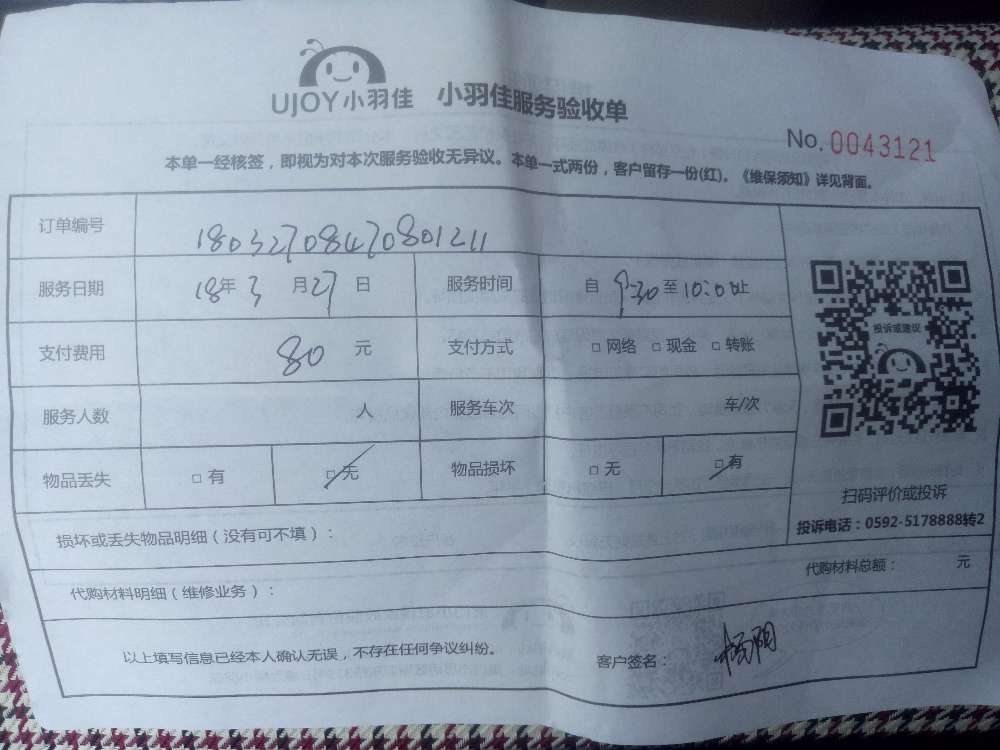 UJOY小羽佳 小羽佳服务验收单
No. 0043121
本单一经核签，即视为对本次服务验收无异议。本单一式两份，客户留存一份(红)。《维保须知》详见背面。
订单编号 18032708470801211
服务日期 18年 3 月 27 日 服务时间 自 9:30 至 10:00 止
投诉或建议
支付费用 80 元 支付方式 □ 网络 □ 现金 □ 转账
服务人数 人 服务车次 车/次
物品丢失 □ 有 □ 无 物品损坏 □ 无 □ 有
扫码评价或投诉
投诉电话：0592-5178888转2
损坏或丢失物品明细（没有可不填）：
代购材料明细（维修业务）： 代购材料总额： 元
以上填写信息已经本人确认无误，不存在任何争议纠纷。 客户签名： 杨阳